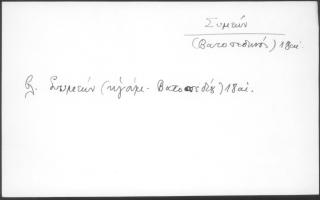 Συμεών
(Βατοπεδινός) 18αι.
βλ. Συμεών (ἡγούμ. Βατοπεδίου) 18αι.